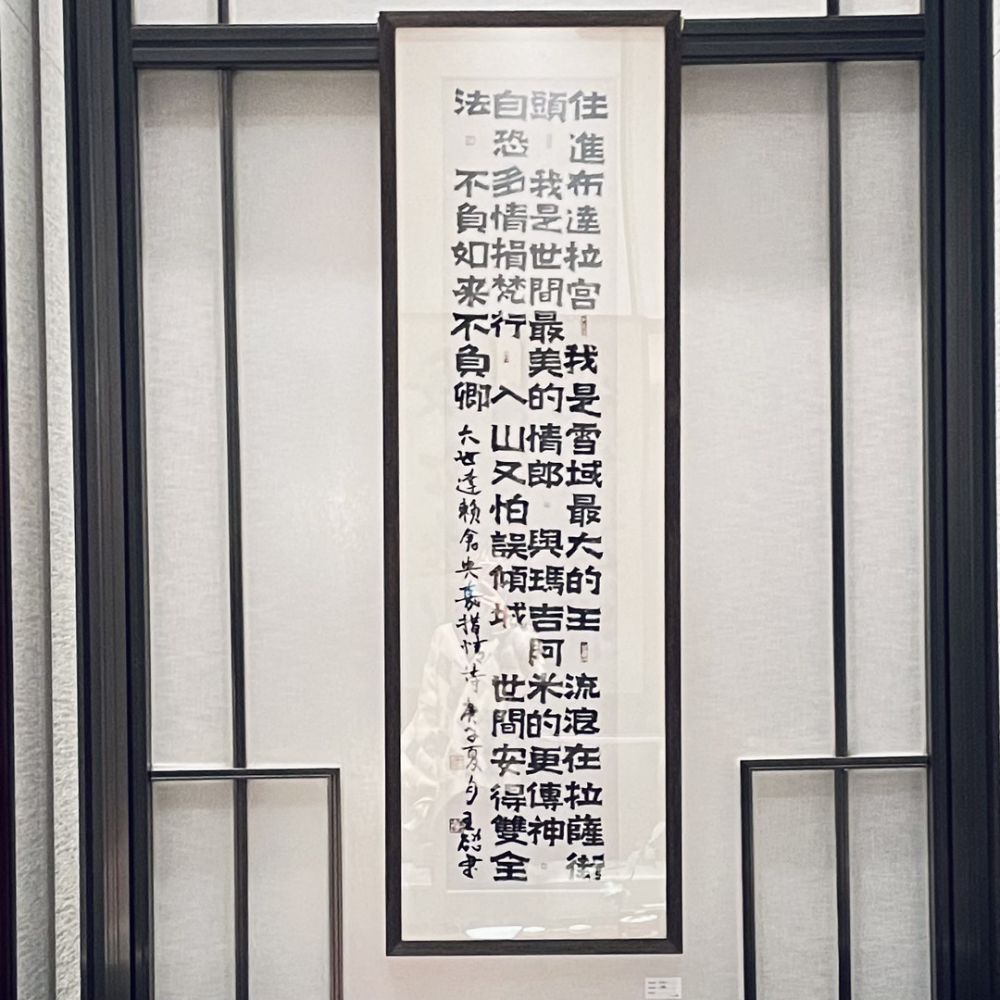 住進布達拉宮我是雪域最大的王流浪在拉薩街
頭我是世間最美的情郎與瑪吉阿米的更傳神
自恐多情損梵行入山又怕誤傾城世間安得雙全
法不負如來不負卿
六世達賴倉央嘉措情詩庚子夏月王